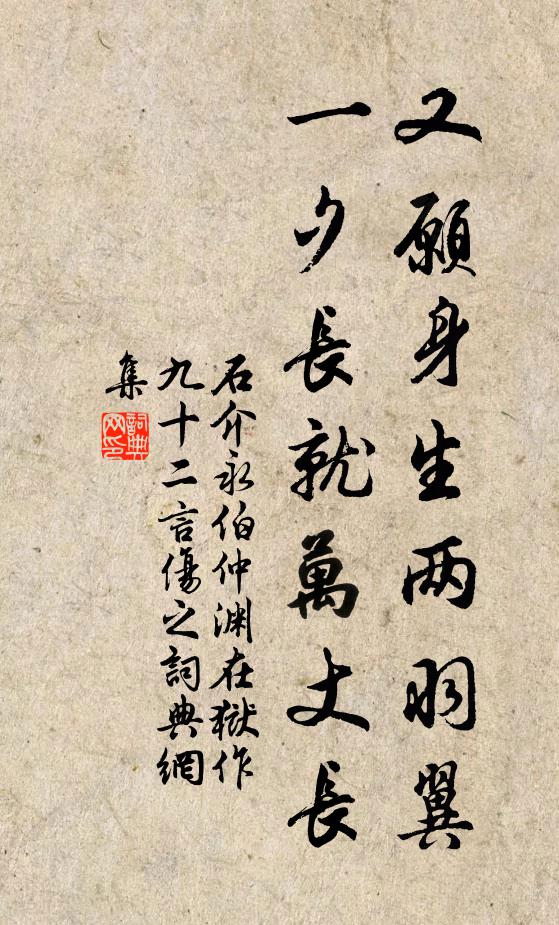 又願身生两羽翼
一夕長就萬丈長
石介永伯仲淵在獄作
九十二言傷之詞典網
集
詞典
网印